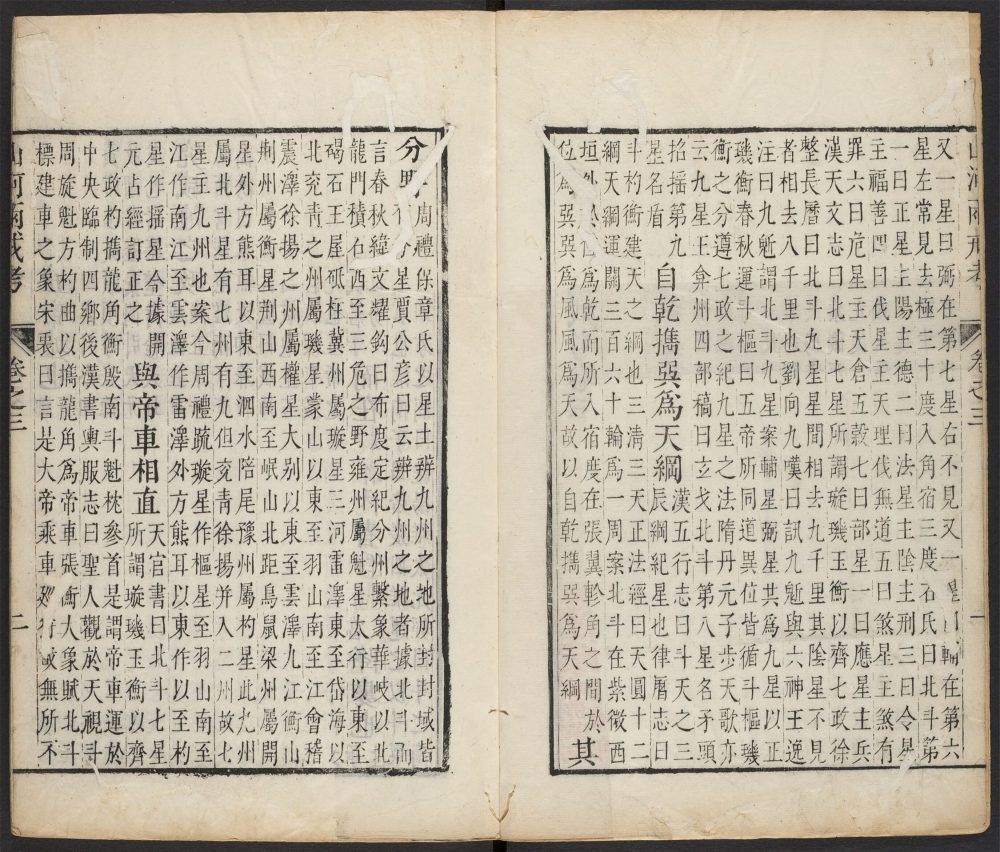 山河兩戒考 卷之三 一
又一星曰弼在第七星右不見又一星曰輔在第六
星左常見去極三十度入角宿三度石氏曰北斗第
一曰正星主陽主德二曰法星主陰主刑三曰令星
主福善四曰伐星主天理伐無道五曰煞星主煞有
罪六曰危星主天倉五穀七曰部星一曰應星主兵
漢天文志曰北斗七星所謂璇璣玉衡以齊七政徐
整長曆曰北斗九星間相去九千里其陰星不見
者相去八千里也劉向九嘆曰訊九鬿與六神王逸
注曰九鬿謂北斗九星案輔星弼星共爲九星以正
璣衡春秋運斗樞曰五帝所同道異位皆循斗樞璣
衡之分遵七政之紀九星之法隋丹元子步天歌亦
云九星王弇州四部稿曰立戈北斗第八星名矛頭
招搖第九
星名盾
自乾攜巽爲天綱
漢五行志曰斗天之三
辰綱紀星也律曆志曰
斗杓衡建天之綱也清三天正法經曰天圓十二
綱天綱運關三百六十輪爲一周案北斗在紫微西
垣外於位爲乾而所入宿度在張翼軫角之間於
位爲巽巽爲風風爲天故以自乾攜巽爲天綱
其
分
周禮保章氏以星土辨九州之地所封封域皆
分星賈公彥曰云辨九州之地者據北斗而
言春秋緯文耀鈎曰布度定紀分州繫象華岐以北
龍門積石西至三危之野雍州屬魁星太行以東至
碣石王屋砥柱冀州屬璇星三河雷澤東至岱海以
北兗青之州屬璣星蒙山以東至羽山南至江會稽
震澤徐揚之州屬權星大別以東至雲澤九江衡山
荆州屬衡星荆山西南至岷山北距鳥鼠梁州屬開
星外方熊耳以東至泗水陪尾豫州屬杓星此九州
屬北斗星有七州有九但兗青徐揚并入二州故七
星主九州也案今周禮疏璇星作樞星至羽山南至
江作南江至雲澤作雷澤外方熊耳以東作以至杓
星作搖星今據開
元占經訂正之
與帝車相直
天官書曰北斗七星
所謂璇璣玉衡以齊
七政杓攜龍角衡殷南斗魁枕參首是謂帝車運於
中央臨制四鄉後漢書輿服志曰聖人觀於天視斗
周旋魁方杓曲以攜龍角爲帝車張衡大象賦北斗
標建車之象宋裵曰言是大帝乘車廵行故無所不
山河兩戒考 卷之三 二